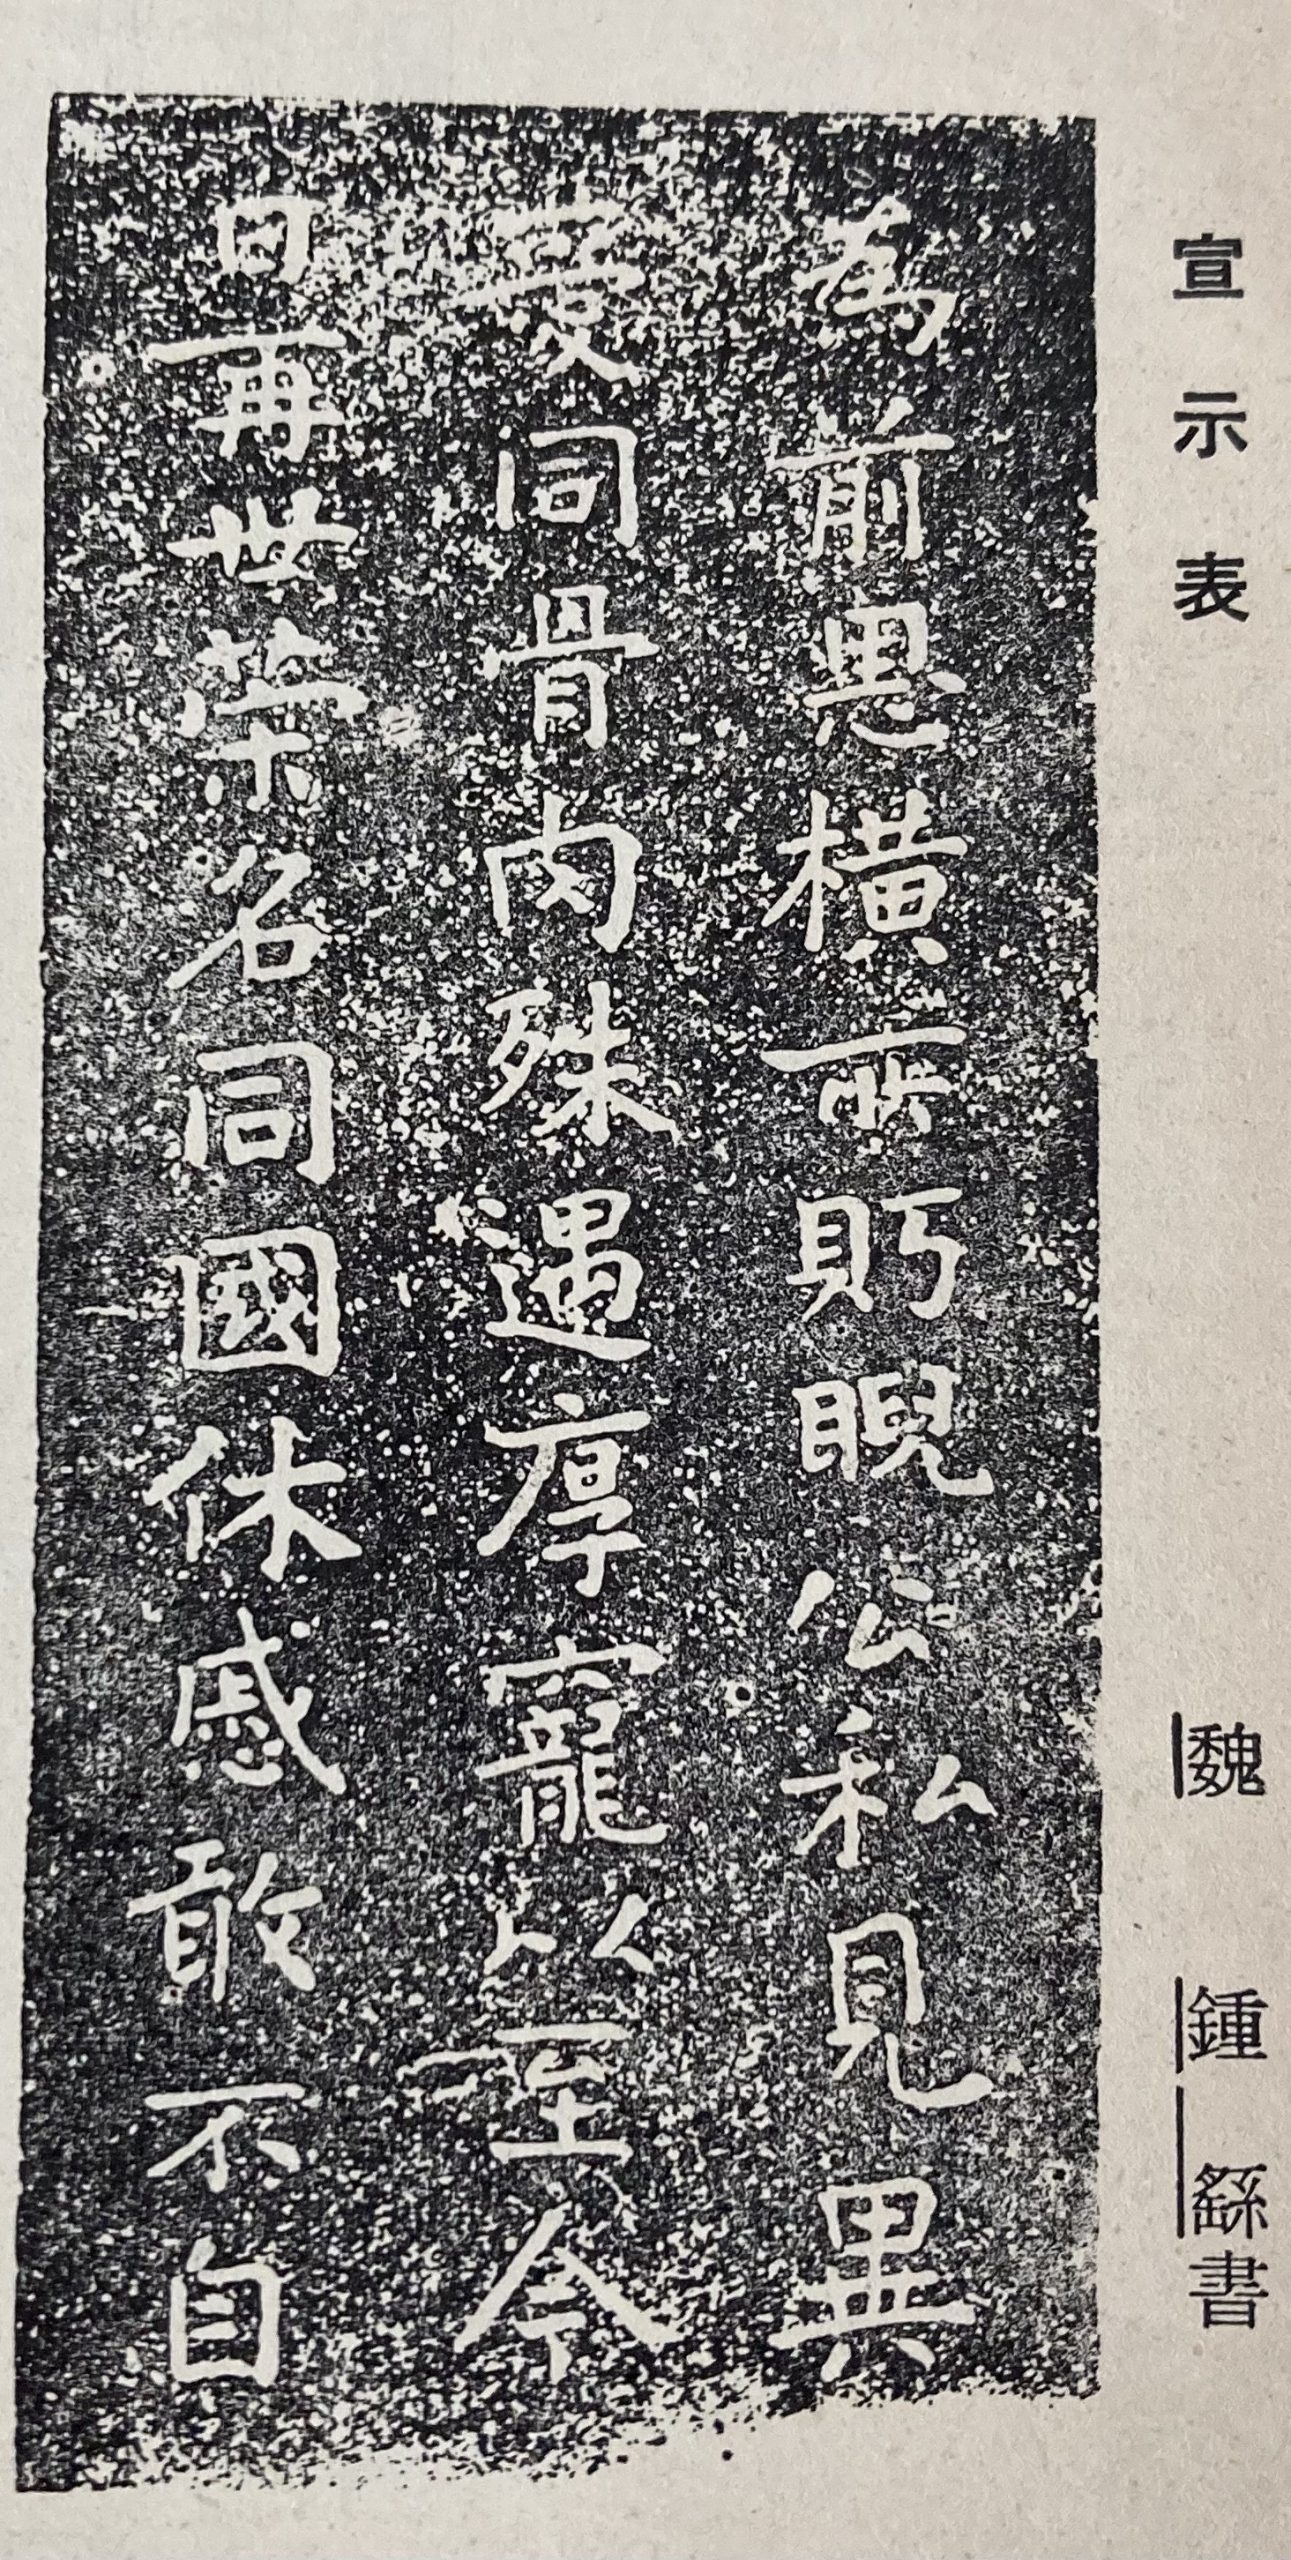 宣示表
魏 鍾繇書
為前恩橫所眄睨公私見異
愛同骨肉殊遇厚寵以至今
日再世榮名同國休慼敢不自